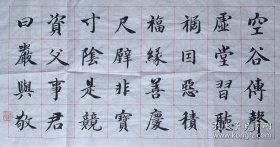 空谷傳聲
虛堂習聽
禍因惡積
福緣善慶
尺璧非寶
寸陰是競
資父事君
曰嚴與敬